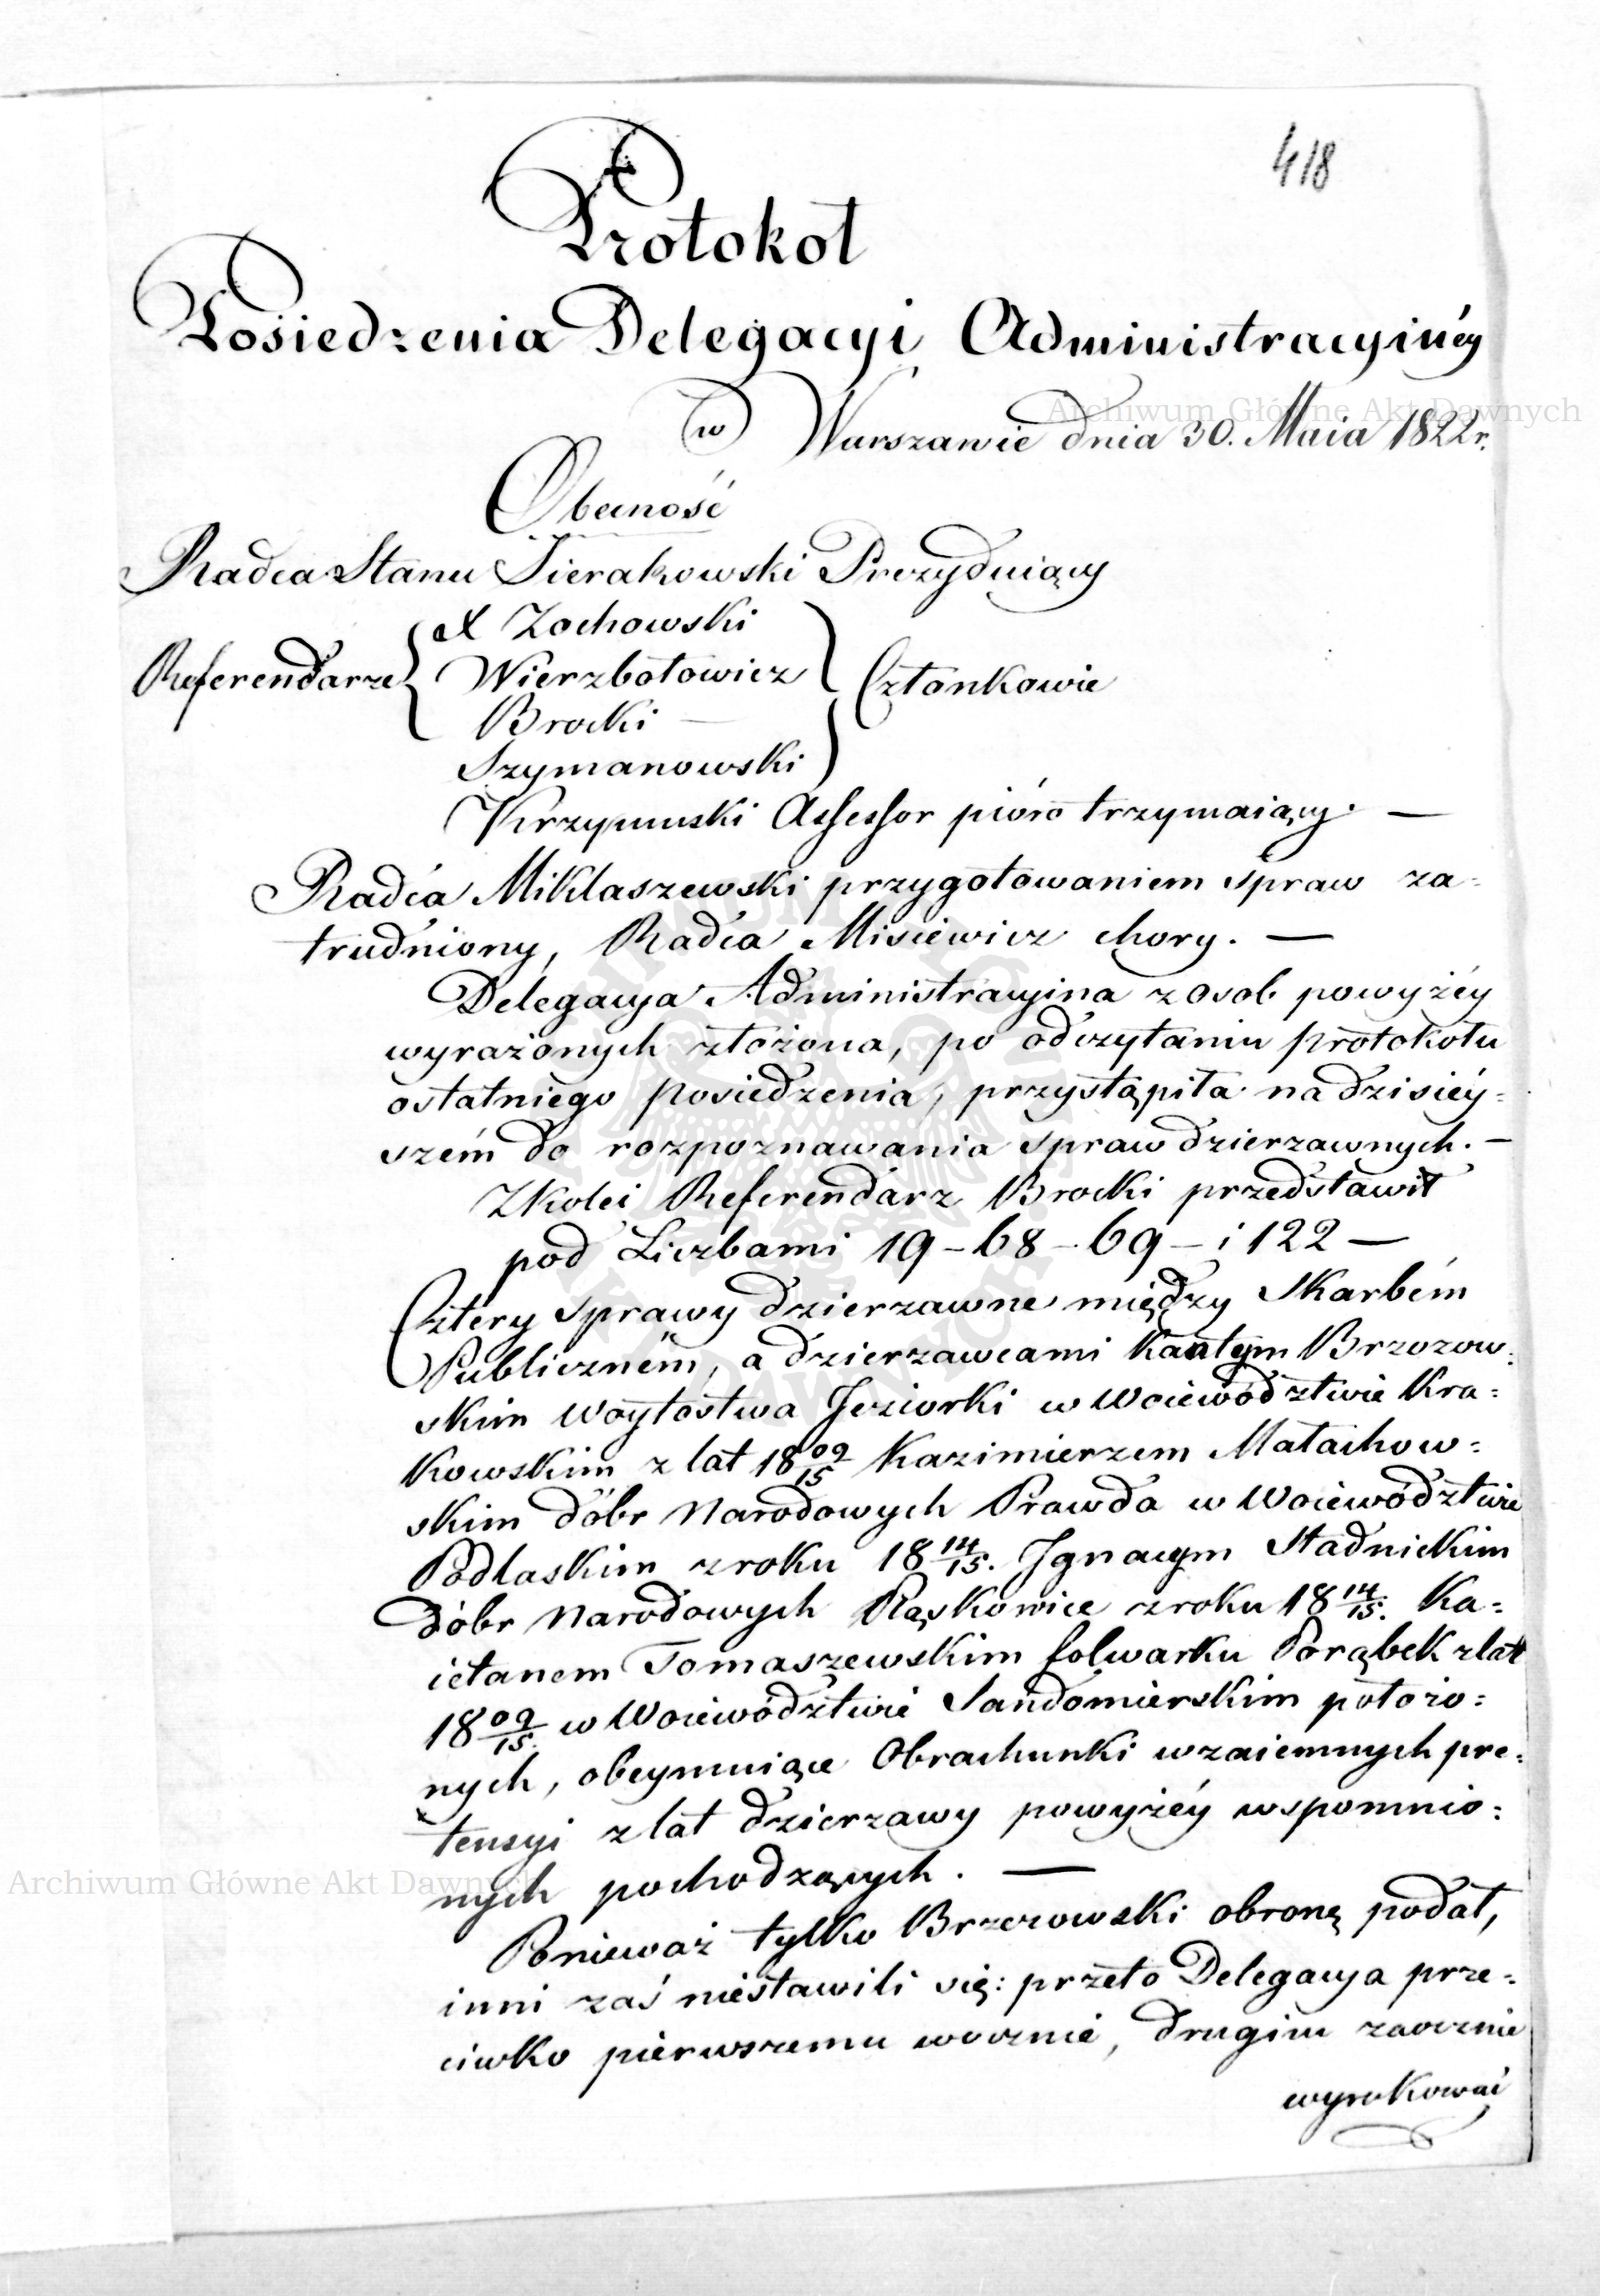 418
Protokoł
Posiedzenia Delegacyi Administracyinéy
w Warszawie dnia 30. Maia 1822 r.
Obecność
Radca Stanu Sierakowski Prezyduiący
X Zochowski
Referendarze Wierzbołowicz Członkowie
Brocki —
Szymanowski
Krzymuski Assessor pióro trzymaiący. —
Radca Miklaszewski przygotowaniem spraw za-
trudniony, Radca Misiewicz chory. —
Delegacya Administracyina z osob powyżéy
wyrażonych złożona, po odczytaniu protokołu
ostatniego posiedzenia, przystąpiła na dzisiéy-
szém do rozpoznawania spraw dzierzawnych. —
Z kolei Referendarz Brocki przedstawił
pod Liczbami 19 – 68 – 69 – i 122 —
Cztery sprawy dzierzawne między Skarbém
Publiczném, a dzierzawcami Kantym Brzozow-
skim Woytostwa Jeziorki w Woiewództwie Kra-
kowskim z lat 18 09/15 Kazimierzem Małachow-
skim dóbr Narodowych Prawda w Woiewództwie
Podlaskim z roku 18 14/15. Ignacym Stadnickim
dóbr Narodowych Rąskowice z roku 18 14/15. Ka-
ietanem Tomaszewskim folwarku Porąbek z lat
18 09/15. w Woiewództwie Sandomierskim położo-
nych, obeymuiące Obrachunki wzaiemnych pre-
tensyi z lat dzierzawy powyżéy wspomnio-
nych pochodzących. —
Ponieważ tylko Brzozowski obronę podał,
inni zaś niestawili się: przeto Delegacya prze-
ciwko pierwszemu ocznie, drugim zaocznie
wyrokować
Archiwum Główne Akt Dawnych
Archiwum Główne Akt Dawnych